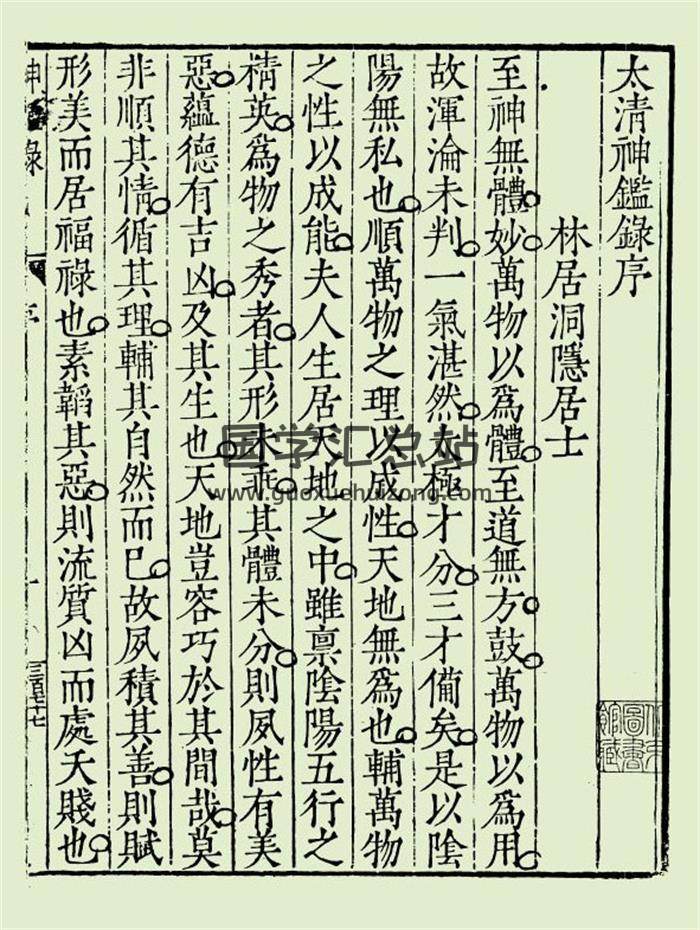 太清神鑑錄序
林居洞隱居士
至神無體妙萬物以爲體至道無方鼓萬物以爲用
故渾淪未判一氣湛然太極才分三才備矣是以陰
陽無私也順萬物之理以成性天地無爲也輔萬物
之性以成能夫人生居天地之中雖禀陰陽五行之
精英爲物之秀者其形未乖其體未分則夙性有美
惡蘊德有吉凶及其生也天地豈容巧於其間哉莫
非順其情循其理輔其自然而已故夙積其善則賦
形美而居福祿也素韜其惡則流質凶而處夭賤也
神
錄
序
三百七十七
国学汇总站
www.guoxuehuizong.com
圖書
館藏